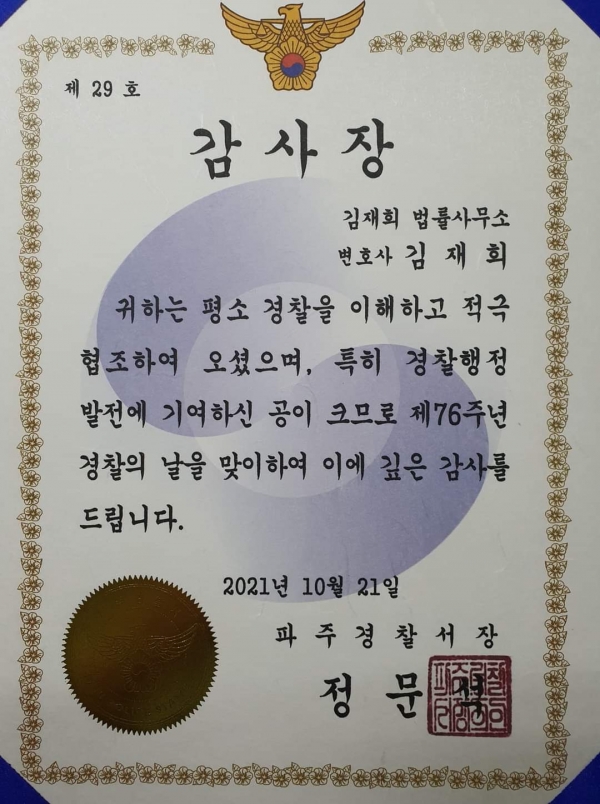 제 29 호
감 사 장
김재희 법률사무소
변호사 김 재 희
귀하는 평소 경찰을 이해하고 적극
협조하여 오셨으며, 특히 경찰행정
발전에 기여하신 공이 크므로 제76주년
경찰의 날을 맞이하여 이에 깊은 감사를
드립니다.
2021년 10월 21일
파 주 경 찰 서 장
정 문 석